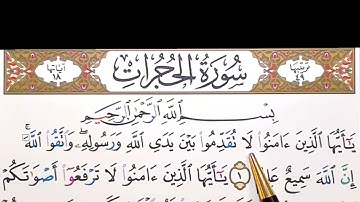 ترتيبها ٤٩ سُورَةُ الحُجُرَاتِ آياتها ١٨
بِسْمِ اللَّهِ الرَّحْمَٰنِ الرَّحِيمِ
يَٰٓأَيُّهَا الَّذِينَ ءَامَنُوا لَا تُقَدِّمُوا بَيْنَ يَدَيِ اللَّهِ وَرَسُولِهِۦ ۖ وَاتَّقُوا اللَّهَ ۚ
إِنَّ اللَّهَ سَمِيعٌ عَلِيمٌ ١ يَٰٓأَيُّهَا الَّذِينَ ءَامَنُوا لَا تَرْفَعُوٓا أَصْوَٰتَكُمْ